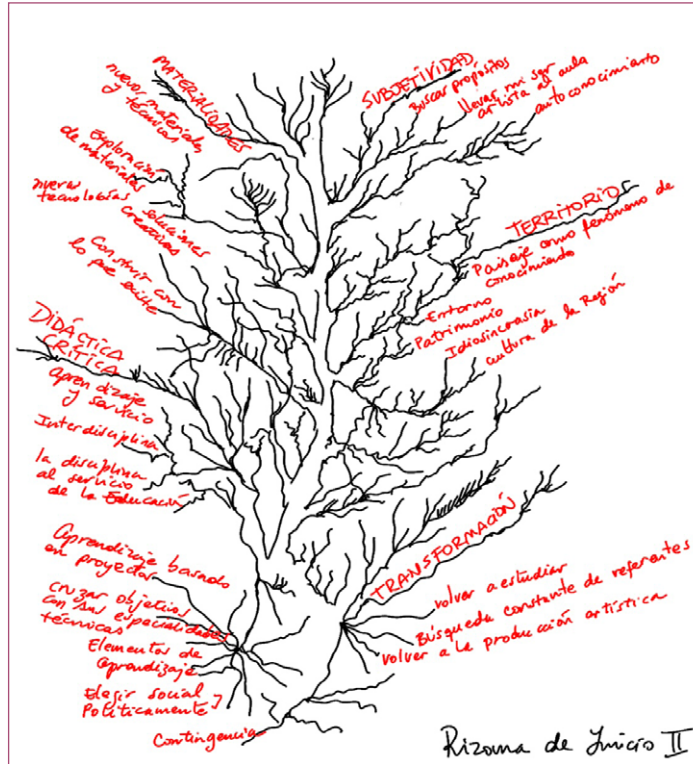 MATERIALIDADES
nuevos materiales
y técnicas
Exploración
de materiales
nuevas
tecnologías
soluciones
creativas
Construir con
lo que existe
DIDÁCTICA
CRÍTICA
aprendizaje
y servicio
Interdisciplina
la disciplina
al servicio
de la Educación
Aprendizaje basado
en proyectos
cruzar objetivos
con sus especialidades
técnicas
Elementos de
aprendizaje
Elegir social y
Políticamente
Contingencia
SUBJETIVIDAD
Buscar propósitos
llevar mi ser
artista al aula
autoconocimiento
TERRITORIO
Paisaje como fenómeno de
conocimiento
Entorno
Patrimonio
Idiosincrasia
cultura de la Región
TRANSFORMACIÓN
volver a estudiar
Búsqueda constante de referentes
volver a la producción artística
Rizoma de Inicio II